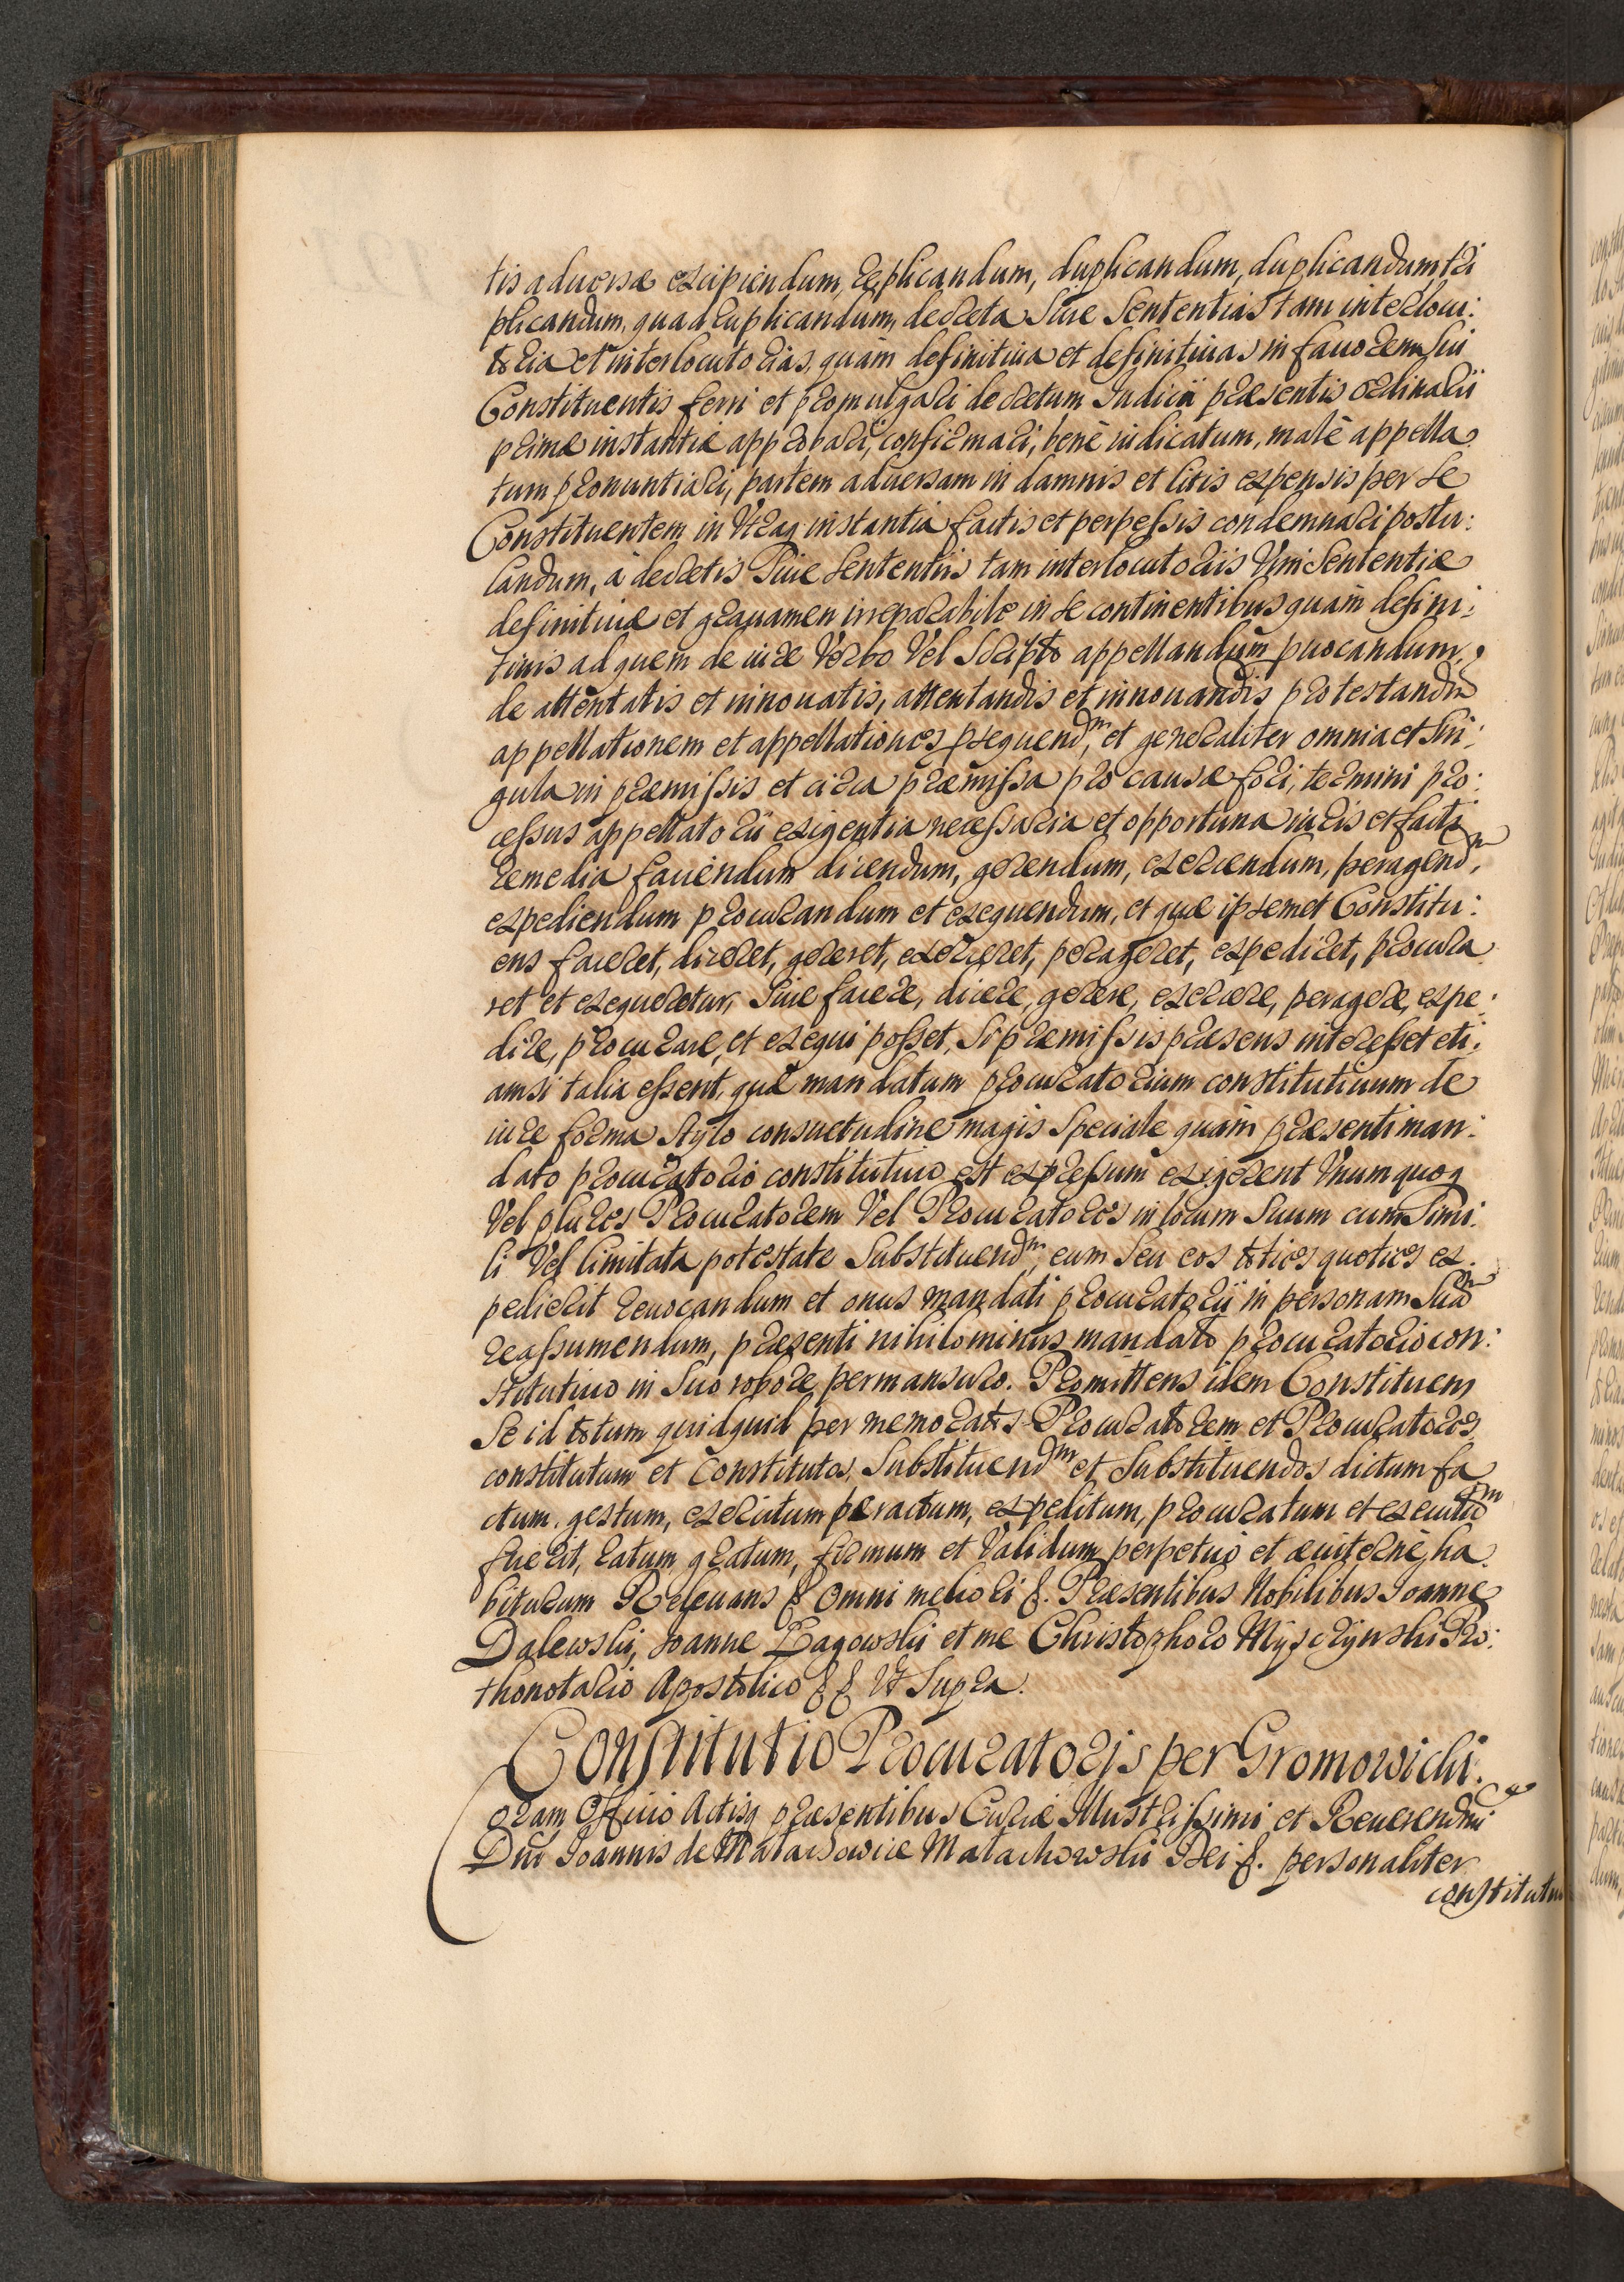 tis aduersæ excipiendum, replicandum, duplicandum, duplicandum tri
plicandum, quadruplicandum, decreta siue sententias tam interlocu:
toria et interlocutorias, quàm definitiua et definitiuas in fauorem sui
Constituentis ferri et promulgari decretum Iudicii præsentis ordinarii
primæ instantiæ approbari, confirmari, benè iudicatum, malè appella
tum pronuntiari, partem aduersam in damnis et litis expensis per se
Constituentem in Vtraq instantia factis et perpessis condemnari postu:
landum, à decretis siue sententiis tam interlocutoriis Vim sententiæ
definitiuæ et grauamen irreparabile in se continentibus quàm defini:
tiuis ad quem de iure Verbo Vel Scripto appellandum puocandum,
de attentatis et innouatis, attentandis et innouandis protestandū
appellationem et appellationes psequendm, et generaliter omnia et sin:
gula in præmissis et circa præmissa pro causæ fori, termini pro:
cessus appellatorii exigentia necessaria et opportuna iuris et facti
remedia faciendum dicendum, gerendum, exercendum, peragendm,
expediendum procurandum et exequendum, et quæ ipsemet Constitu:
ens faceret, diceret, gereret, exerceret, perageret, expediret, procura
ret et exequeretur, siue facere, dicere, gerere, exercere, peragere, expe:
dire, procurare, et exequi posset, si præmissis præsens interesset eti:
amsi talia essent, quæ mandatum procuratorium constitutiuum de
iure forma stylo consuetudine magis speciale quàm præsenti man:
dato procuratorio constitutiuo est expressum exigerent Vnum quoq
Vel plures Procuratorem Vel Procuratores in locum suum cum simi:
li Vel limitata potestate substituendm, eum seu eos toties quoties ex
pedierit reuocandum et onus mandati procuratorii in personam suam
reassumendum, præsenti nihilominus mandato procuratorio con:
stitutiuo in suo robore permansuro. Promittens idem Constituens
Se id totum quidquid per memoratos Procuratorem et Procuratores
constitutum et Constitutos, Substituendm et Substituendos dictum fa
ctum, gestum, exercitum peractum, expeditum, procuratum et executum
fuerit, ratum gratum, firmum et Validum perpetuò et æuiternè ha
biturum Releuans & Omni meliori &. Præsentibus Nobilibus Ioanne
Dalewski, Ioanne Łagowski et me Christophoro Myszczynski Pro:
thonotario Apostolico && Vt Supra.
Constitutio Procuratoris per Gromowichi.
Coram Officio Actisq præsentibus Curiæ Illustrissimi et Reuerendmi
Dni Ioannis de Małachowice Małachowski Dei &. personaliter
constitutus